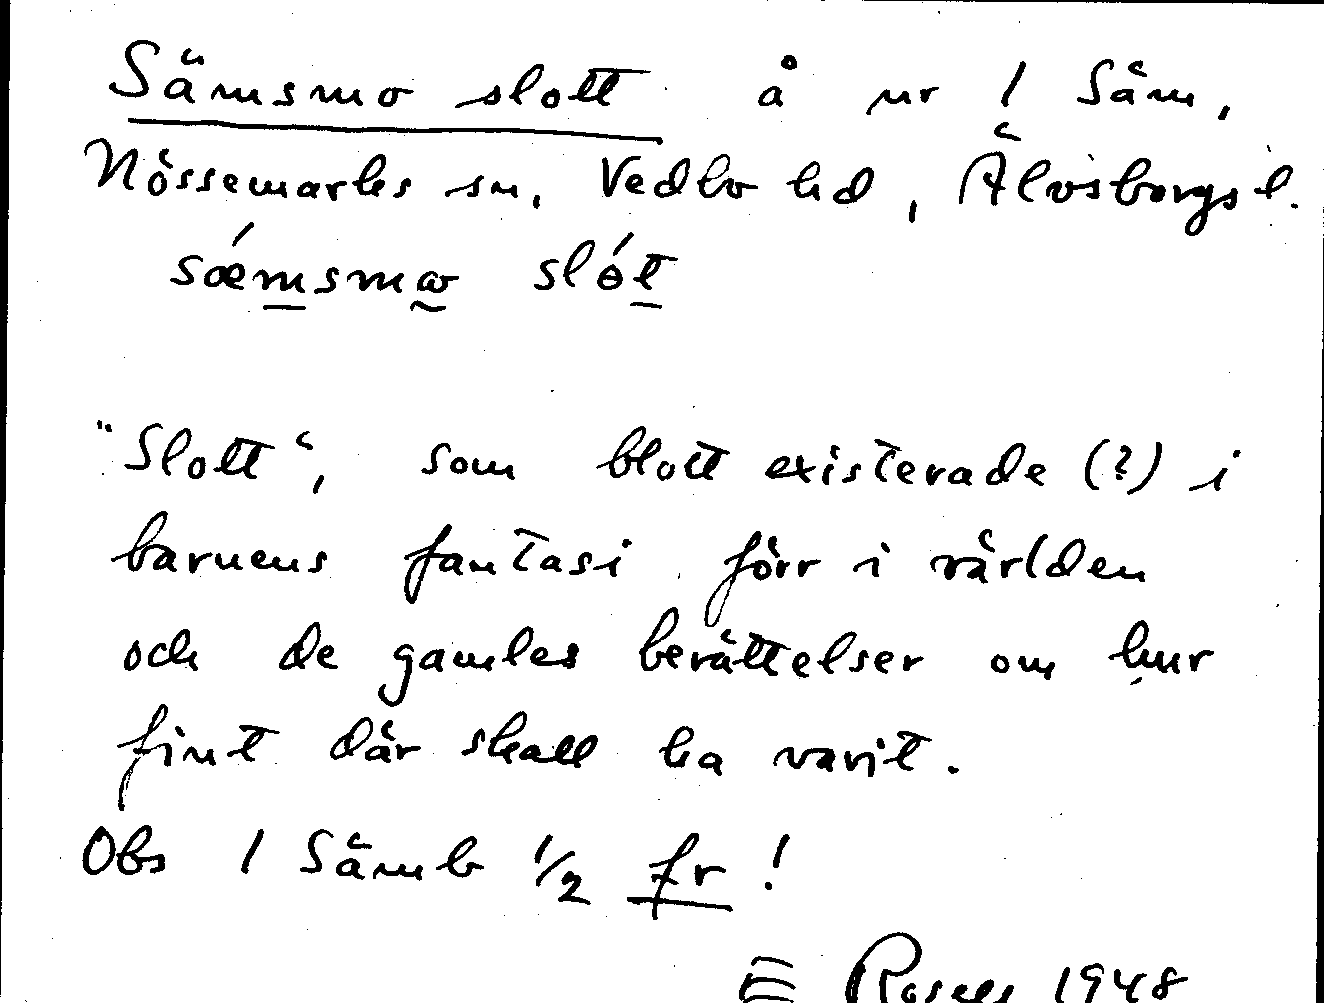 Sämsmo slott å nr 1 Säm,
Nössemarks sn, Vedbo hd, Älvsborgs l.
sǽmsmꞷ slót
"Slott", som blott existerade (?) i
barnens fantasi förr i världen
och de gamles berättelser om hur
fint där skall ha varit.
Obs 1 Sämb 1/2 fr!
E 1948